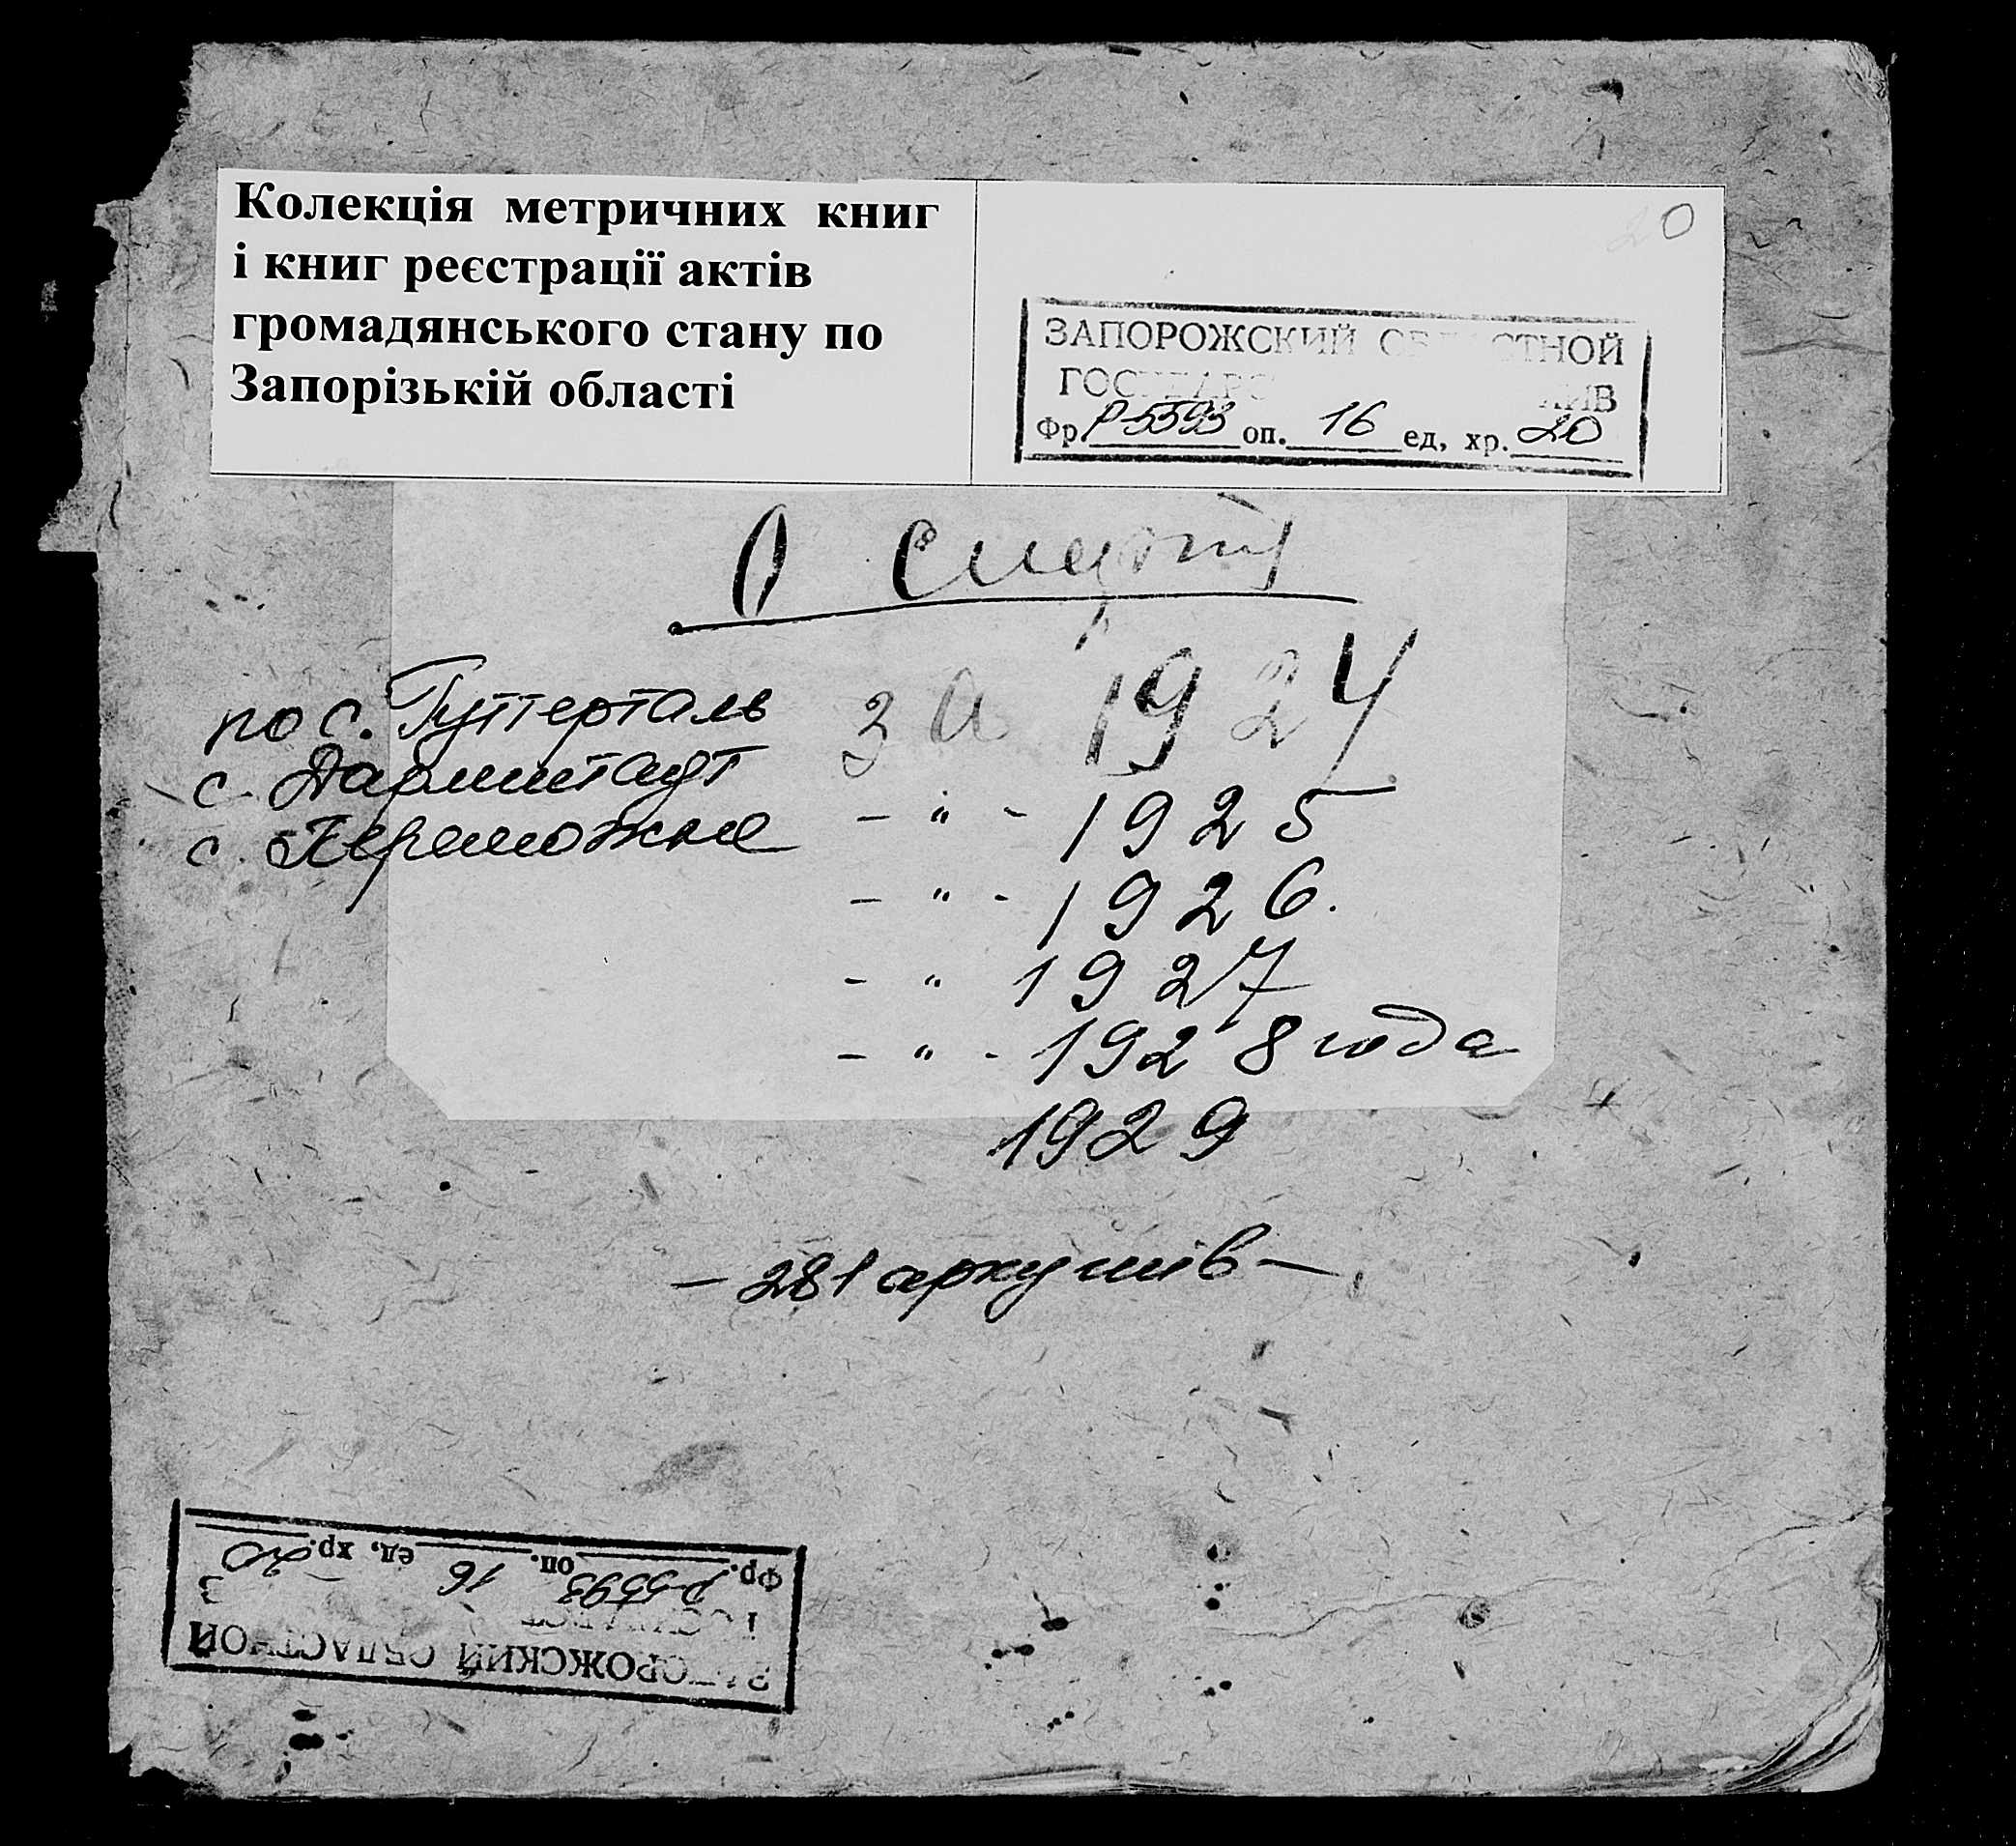 Колекція метричних книг
і книг реєстрації актів
громадянського стану по
Запорізькій області
20
ЗАПОРОЖСКИЙ ОБЛАСТНОЙ
Фр Р-5593 оп. 16 ед, хр. 20
О смерти
по с. Гуттерталь за 1924
с. Дармштадт - " - 1925
с. Переможне - " - 1926.
- " 1927
- " - 1928 года
1929
- 281 аркушів -
ЗАПОРОЖСКИЙ ОБЛАСТНОЙ
Фр. Р-5593 оп. 16 ед, хр. 20